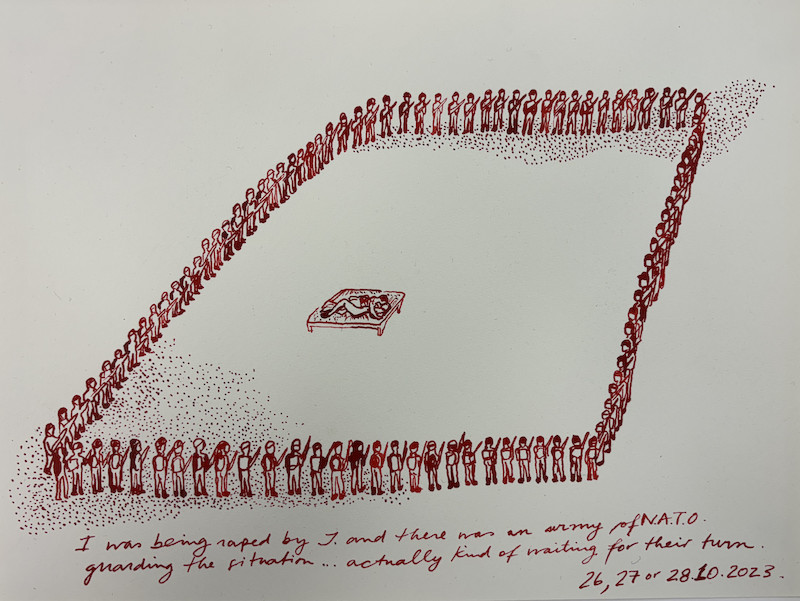 I was being raped by J. and there was an army of N.A.T.O.
guarding the situation... actually kind of waiting for their turn.
26, 27 or 28.10.2023.